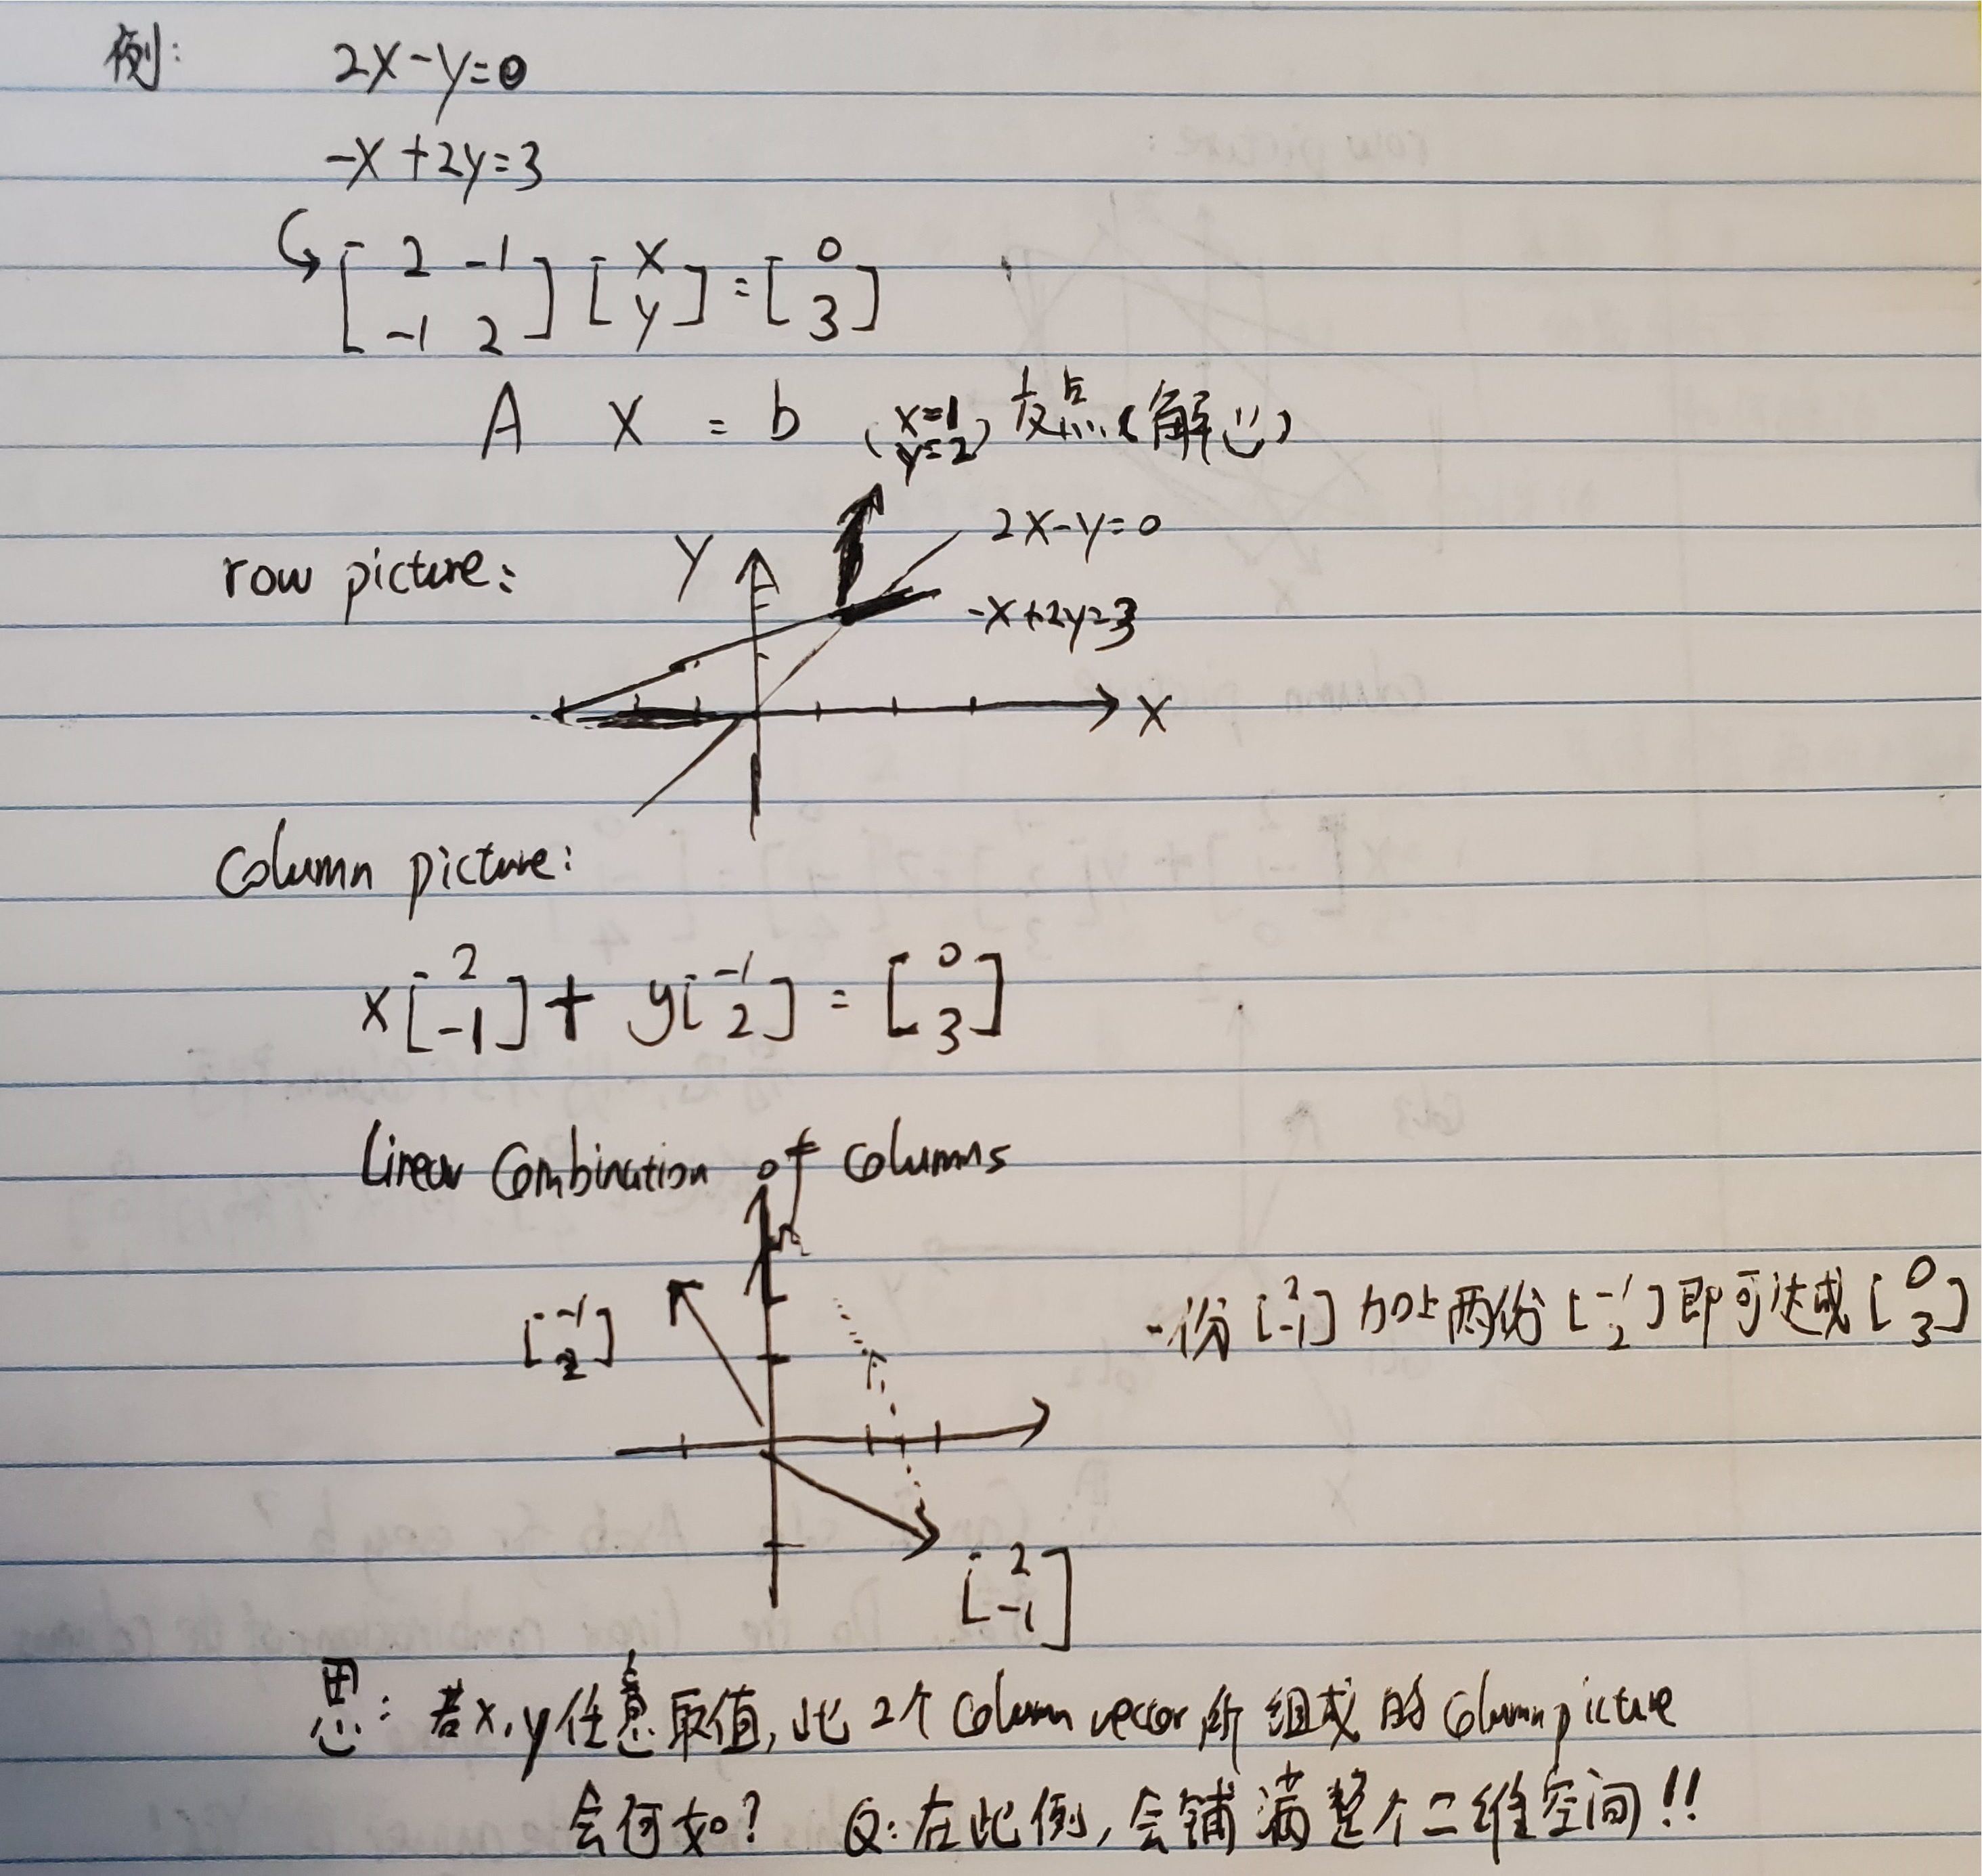 例: 2x-y=0
-x+2y=3
[2 -1
-1 2] [x
y] = [0
3]
A X = b (x=1
y=2) 交点(解!!)
2x-y=0
row picture: Y
-x+2y=3
X
Column picture:
x[2
-1] + y[-1
2] = [0
3]
Linear Combination of Columns
[-1
2]
一份[2
-1]加上两份[-1
2]即可达成[0
3]
[2
-1]
思: 若x,y任意取值,此2个Column vector所组成的Column picture
会何如? Q:在此例,会铺满整个二维空间!!